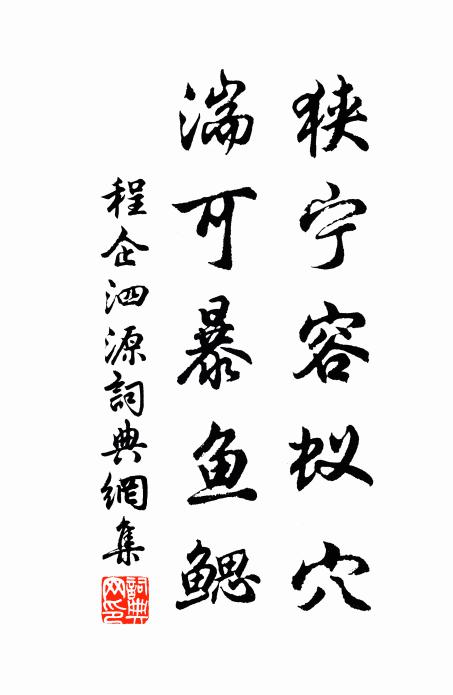 狭宁容蚁穴
湍可暴鱼鳃
程企泗源詞典網集
詞典網印